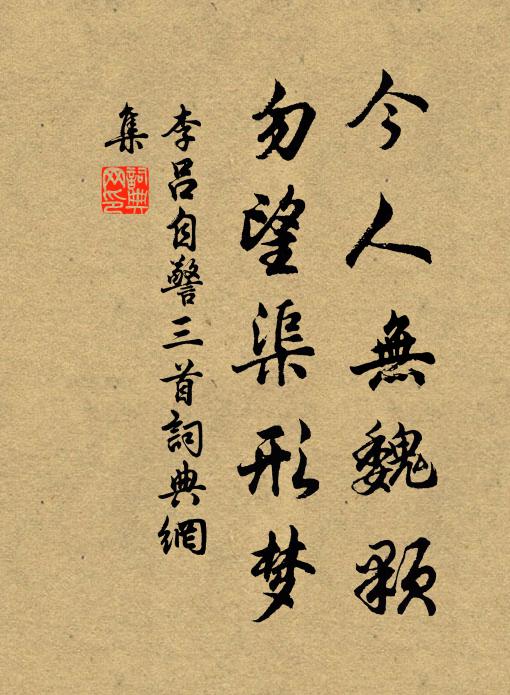 今人無魏顆
勿望渠形梦
李呂自警三首詞典網
集
詞典网印